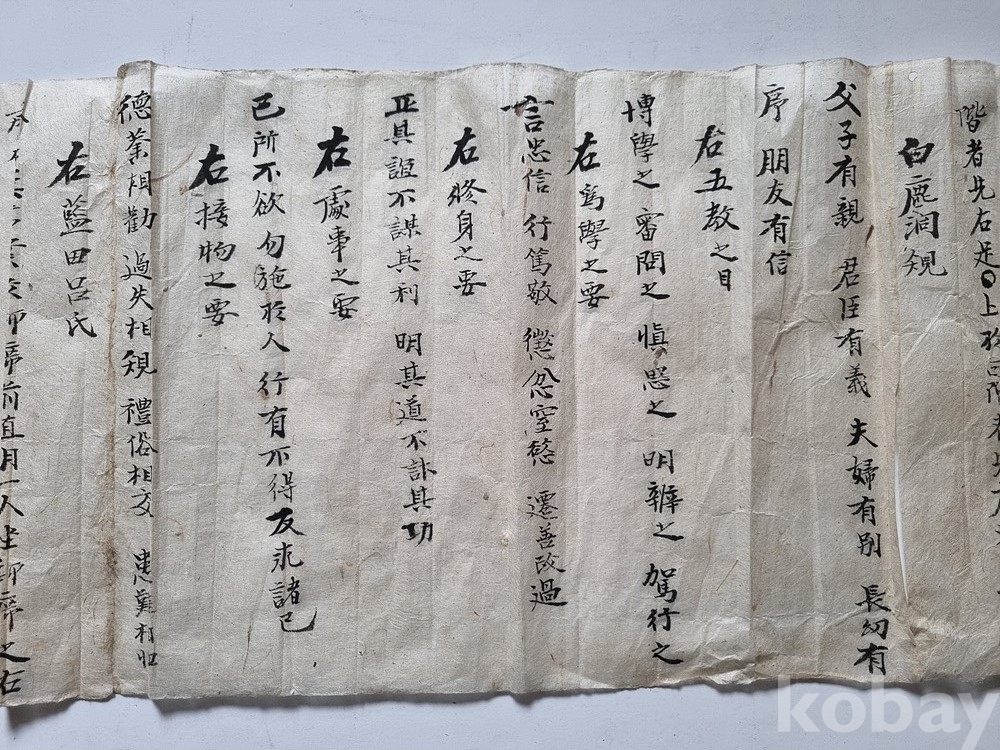 階者先右足曰上於西階者
白鹿洞規
父子有親 君臣有義 夫婦有別 長幼有
序 朋友有信
右五教之目
博學之 審問之 愼思之 明辨之 駕行之
右爲學之要
言忠信 行篤敬 懲忿窒慾 遷善改過
右修身之要
正其誼不謀其利 明其道不計其功
右處事之要
己所不欲勿施於人 行有不得反求諸己
右接物之要
德業相勸 過失相規 禮俗相交 患難相恤
右藍田呂氏
席前直月一人坐 席之右
kobay